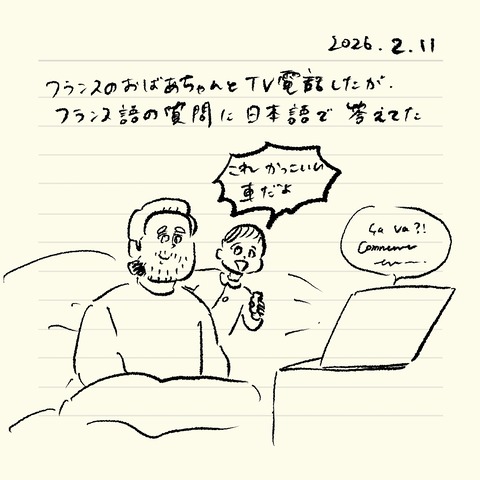 2026.2.11
フランスのおばあちゃんとTV電話したが、
フランス語の質問に日本語で答えてた
これ かっこいい
車だよ
ça va?!
Comment